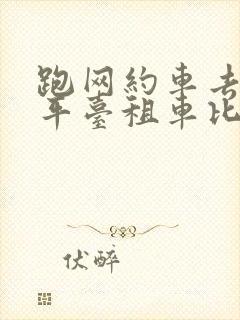 跑网約車去
平臺租車比
伏醉